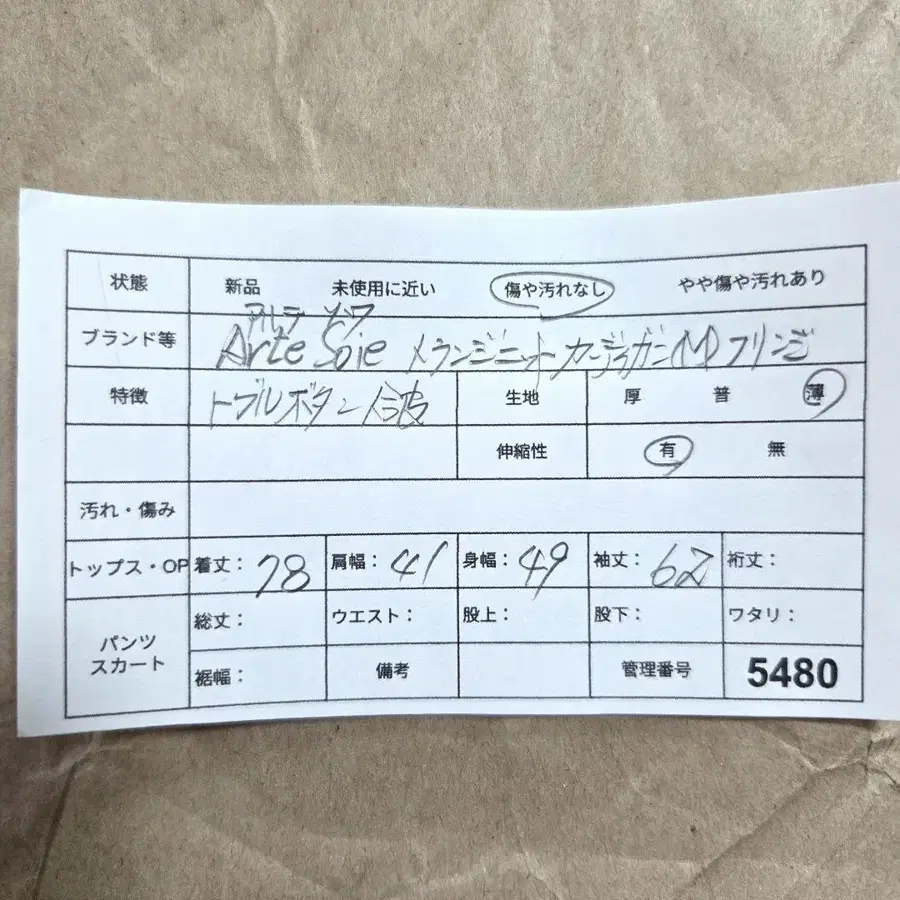 状態 新品 未使用に近い 傷や汚れなし やや傷や汚れあり
アルテ ソワ
ブランド等 Arte Soie メランジニットカーディガン(M)フリンジ
特徴 トグルボタン合皮 生地 厚 普 薄
伸縮性 有 無
汚れ・傷み
トップス・OP 着丈: 78 肩幅: 41 身幅: 49 袖丈: 62 裄丈:
パンツ スカート 総丈: ウエスト: 股上: 股下: ワタリ:
裾幅: 備考 管理番号 5480